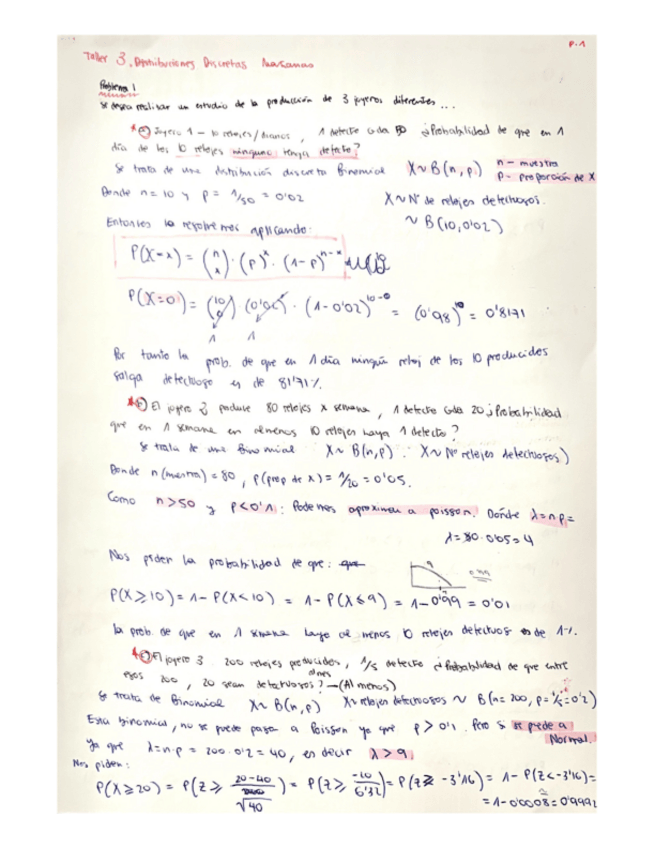 P.1
Taller 3. Distribuciones Discretas
Problema 1
Se desea realizar un estudio de la producción de 3 joyeros diferentes...
Joyero 1 - 10 relojes/diarios, 1 defecto cada 50 ¿Probabilidad de que en 1
día de los 10 relojes ninguno tenga defecto?
Se trata de una distribución discreta Binomial X~B(n,p) n - muestra
p - proporción de X
Donde n = 10 y p = 1/50 = 0'02 X ~ Nº de relojes defectuosos.
~ B(10,0'02)
Entonces lo resolvemos aplicando:
P(X=x) = (n x) · (p)^x · (1-p)^n-x
P(X=0) = (10 0) (0'02)^0 · (1-0'02)^10-0 = (0'98)^10 = 0'8171
1 1
Por tanto la prob. de que en 1 día ningún reloj de los 10 producidos
salga defectuoso es de 81'71%.
El joyero 2 produce 80 relojes x semana, 1 defecto cada 20 ¿Probabilidad
que en 1 semana en al menos 10 relojes haya 1 defecto?
Se trata de una Binomial X~B(n,p) X ~ Nº relojes defectuosos.)
Donde n(muestra) = 80, p(prop de x) = 1/20 = 0'05.
Como n>50 y p<0'1: Podemos aproximar a poisson. Donde λ=n·p=
λ=80·0'05=4
Nos piden la probabilidad de que:
P(X⩾10) = 1-P(X<10) = 1-P(X⩽9) = 1-0'99 = 0'01
la prob. de que en 1 semana haya al menos 10 relojes defectuos es de 1%.
El joyero 3 200 relojes producidos, 1/5 defecto ¿Probabilidad de que entre
esos 200, 20 sean defectuosos? → (Al menos)
Se trata de Binomial X~B(n,p) X~relojes defectuosos ~ B(n=200, p=1/5=0'2)
Esta binomial, no se puede pasar a Poisson ya que p>0'1. Pero si se puede a
Normal.
ya que λ=n·p = 200·0'2 = 40, es decir λ>9.
Nos piden:
P(X⩾20) = P(Z⩾ 20-40/√40) = P(Z⩾ -10/6'32) = P(Z⩾ -3'16) = 1-P(Z<-3'16)=
= 1-0'0008 = 0'9992